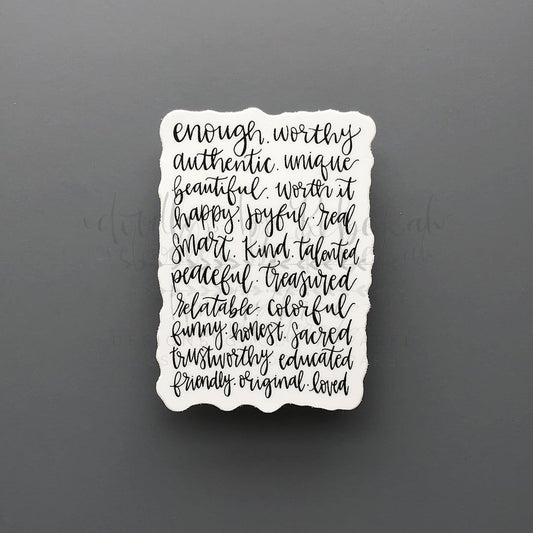 enough. worthy
authentic. unique
beautiful. worth it
happy. joyful. real
smart. kind. talented
peaceful. treasured
relatable. colorful
funny. honest. sacred
trustworthy. educated
friendly. original. loved